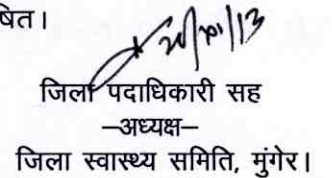 षित।
जिला पदाधिकारी सह
–अध्यक्ष–
जिला स्वास्थ्य समिति, मुंगेर।